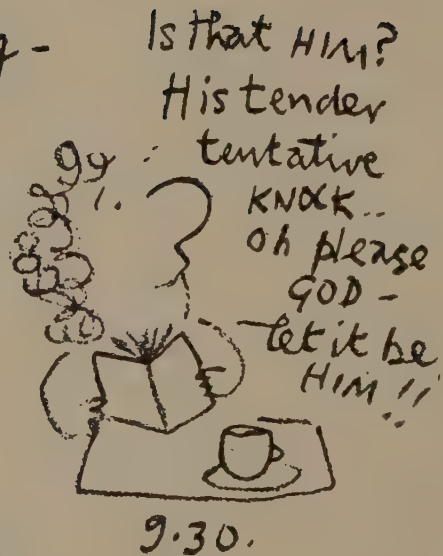 Is that HIM?
His tender
tentative
KNOCK..
oh please
GOD -
let it be
HIM!!
9.30.